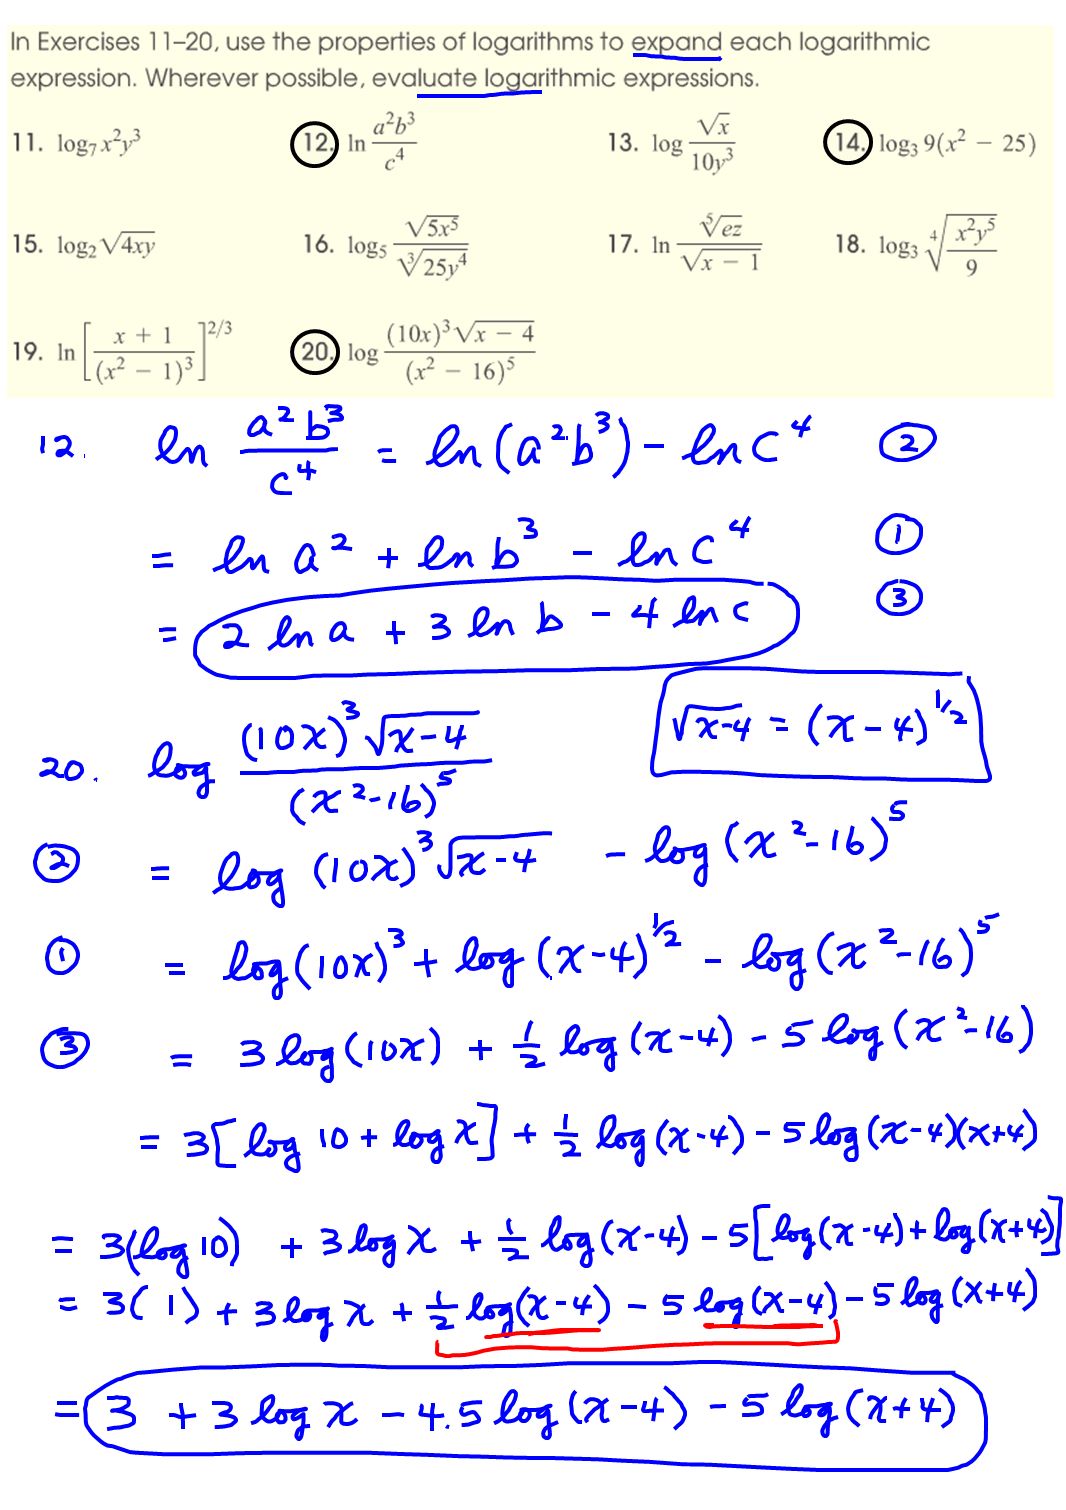 In Exercises 11–20, use the properties of logarithms to expand each logarithmic
expression. Wherever possible, evaluate logarithmic expressions.
11. log₇ x²y³ 12. ln a²b³/c⁴ 13. log √x/10y³ 14. log₃ 9(x² − 25)
15. log₂ √4xy 16. log₅ √5x⁵/∛25y⁴ 17. ln ⁵√ez/√x − 1 18. log₃ ⁴√x²y⁵/9
19. ln [x + 1/(x² − 1)³]^2/3 20. log (10x)³√x − 4/(x² − 16)⁵
12. ln a²b³/c⁴ = ln(a²b³) − ln c⁴ ②
= ln a² + ln b³ − ln c⁴ ①
= 2 ln a + 3 ln b − 4 ln c ③
√x-4 = (x − 4)^1/2
20. log (10x)³√x−4/(x²−16)⁵
② = log (10x)³√x−4 − log (x²−16)⁵
① = log(10x)³ + log (x−4)^1/2 − log(x²−16)⁵
③ = 3 log(10x) + 1/2 log(x−4) − 5 log(x²−16)
= 3[log 10 + log x] + 1/2 log(x-4) − 5 log(x-4)(x+4)
= 3(log 10) + 3 log x + 1/2 log(x−4) − 5[log(x-4) + log(x+4)]
= 3(1) + 3 log x + 1/2 log(x−4) − 5 log(x−4) − 5 log(x+4)
= 3 + 3 log x − 4.5 log(x−4) − 5 log(x+4)